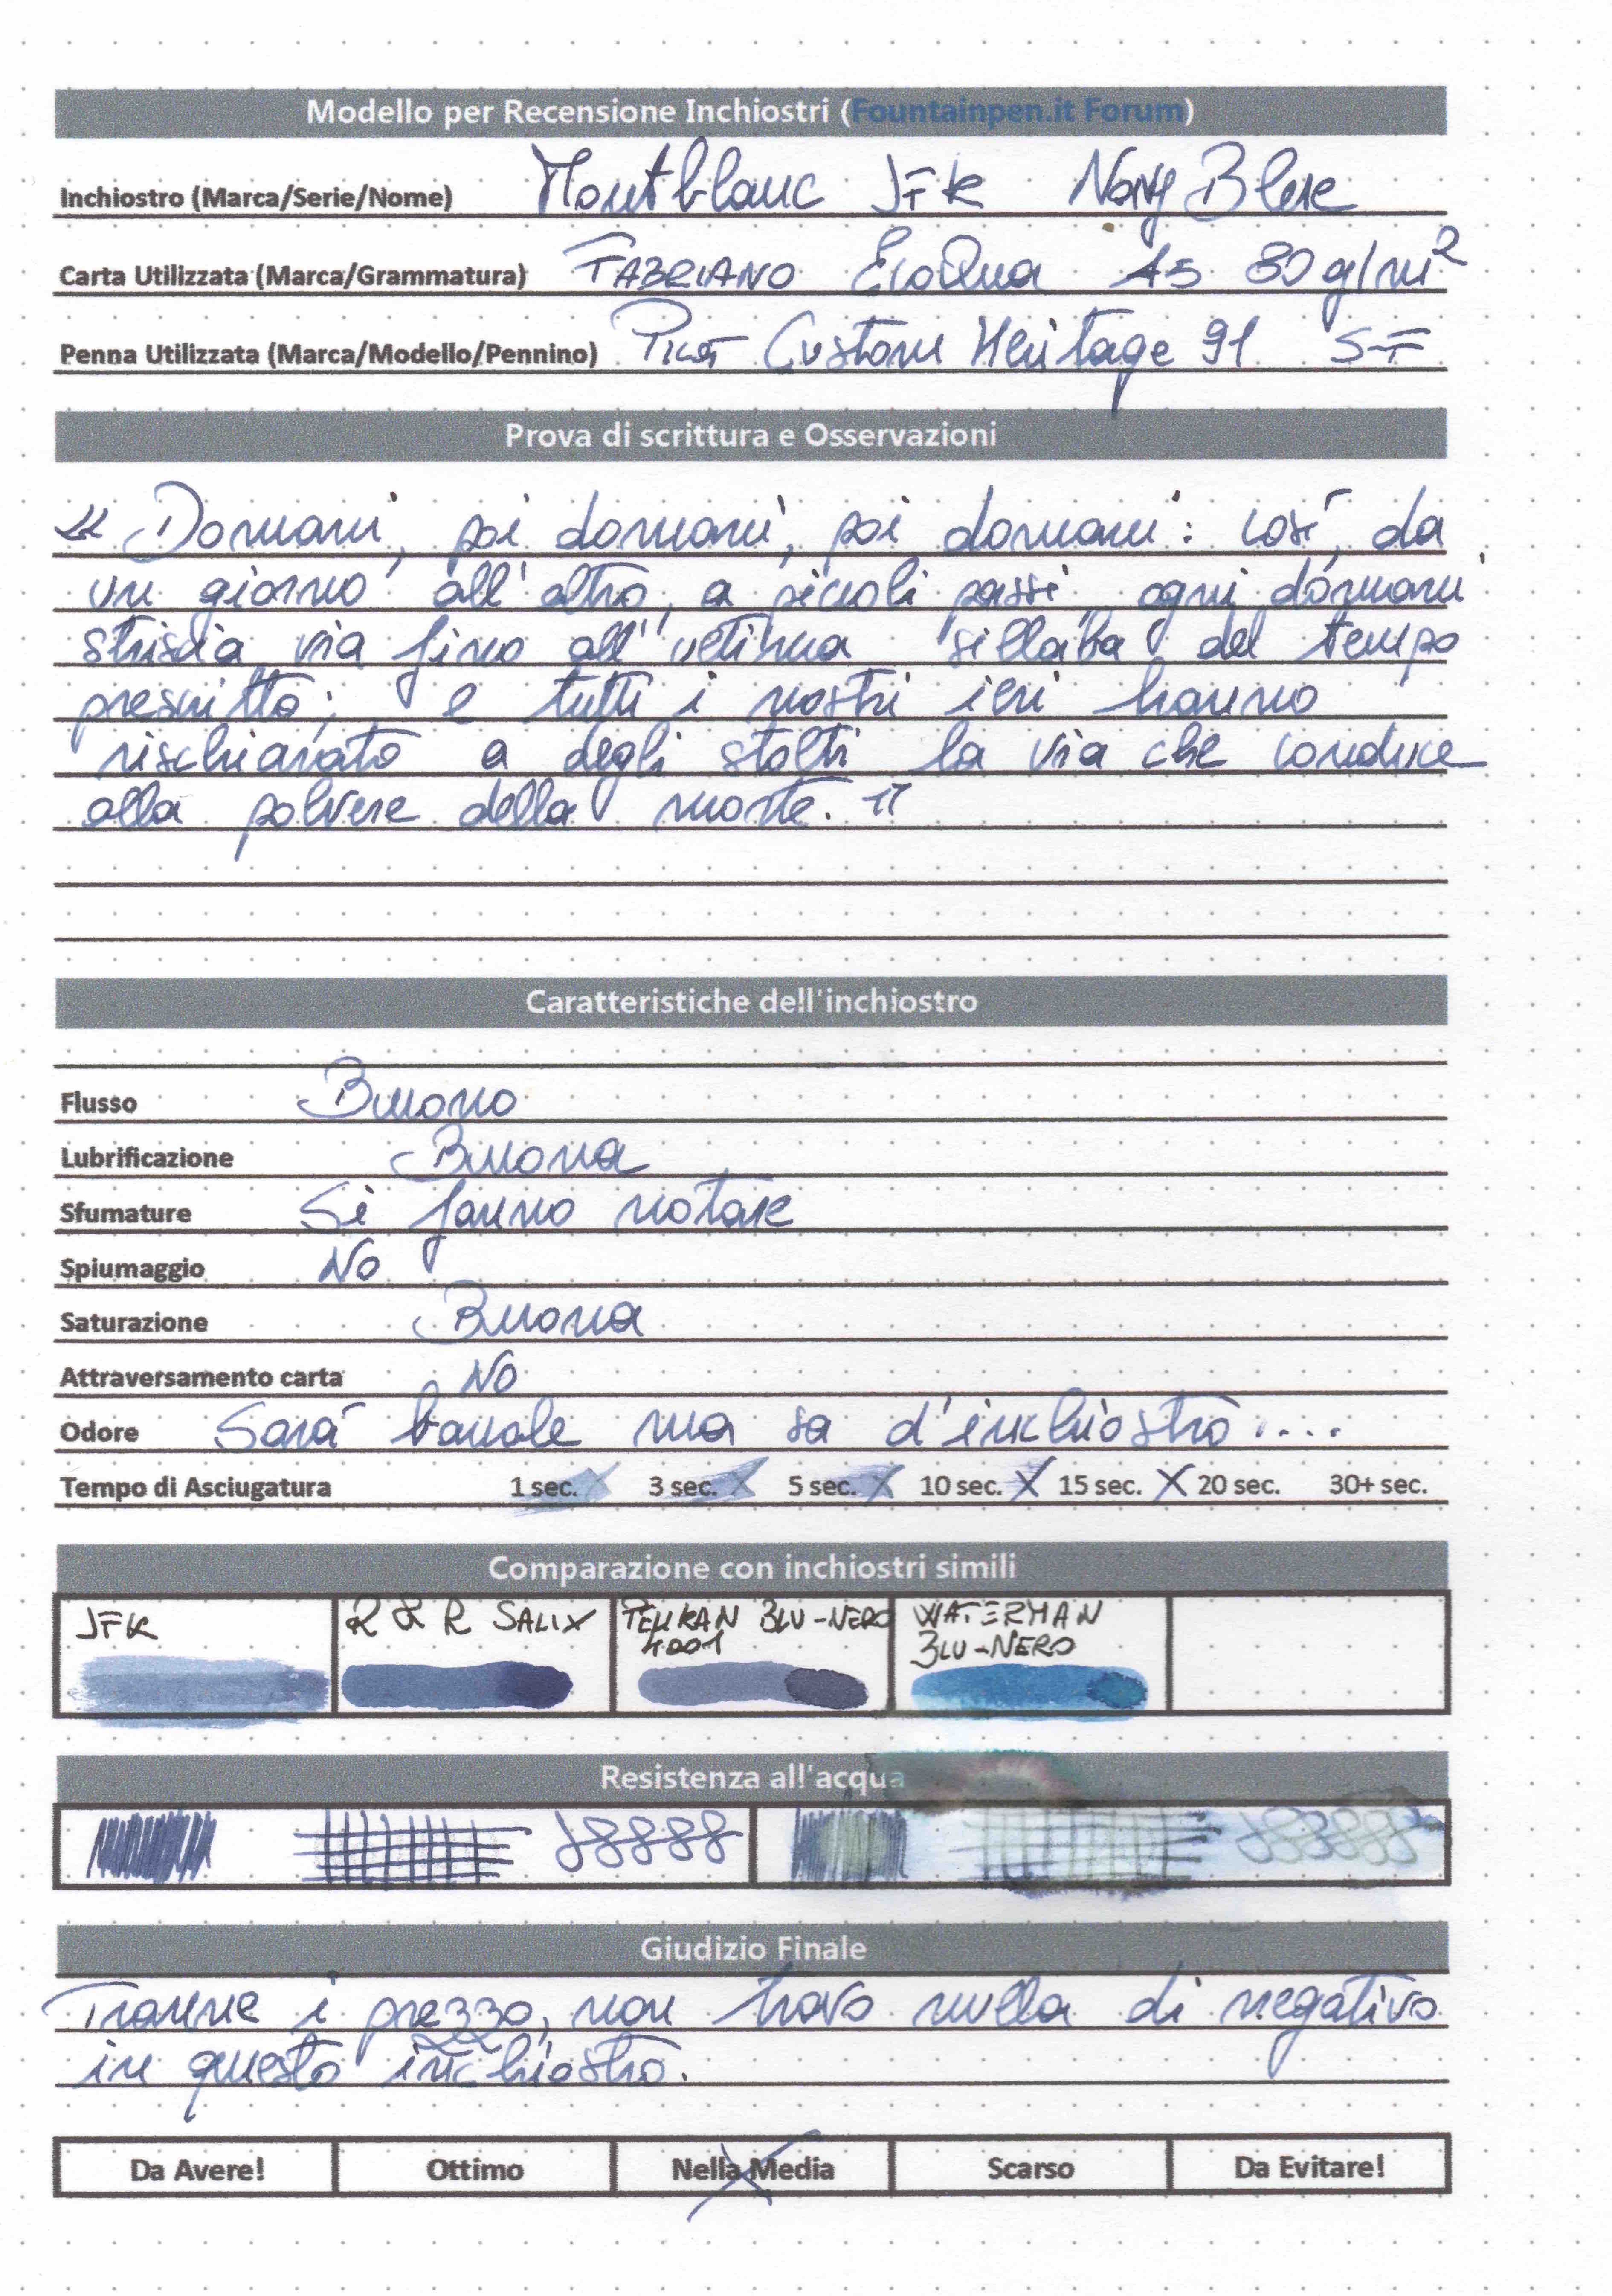 Modello per Recensione Inchiostri (Fountainpen.it Forum)
Inchiostro (Marca/Serie/Nome) Montblanc JFK Navy Blue
Carta Utilizzata (Marca/Grammatura) FABRIANO EcoQua A5 80 g/m²
Penna Utilizzata (Marca/Modello/Pennino) Pilot Custom Heritage 91 SF
Prova di scrittura e Osservazioni
" Domani, poi domani, poi domani: così, da
un giorno all'altro, a piccoli passi, ogni domani
striscia via fino all'ultima sillaba del tempo
prescritto; e tutti i nostri ieri hanno
rischiarato a degli stolti la via che conduce
alla polvere della morte. "
Caratteristiche dell'inchiostro
Flusso Buono
Lubrificazione Buona
Sfumature Si fanno notare
Spiumaggio No
Saturazione Buona
Attraversamento carta No
Odore Sarà banale ma sa d'inchiostro....
Tempo di Asciugatura 1 sec. X 3 sec. X 5 sec. X 10 sec. X 15 sec. X 20 sec. 30+ sec.
Comparazione con inchiostri simili
JFK R & R SALIX PELIKAN BLU-NERO WATERMAN
4001 BLU-NERO
Resistenza all'acqua
Giudizio Finale
Tranne i prezzo, non trovo nulla di negativo
in questo inchiostro.
Da Avere! Ottimo Nella Media Scarso Da Evitare!